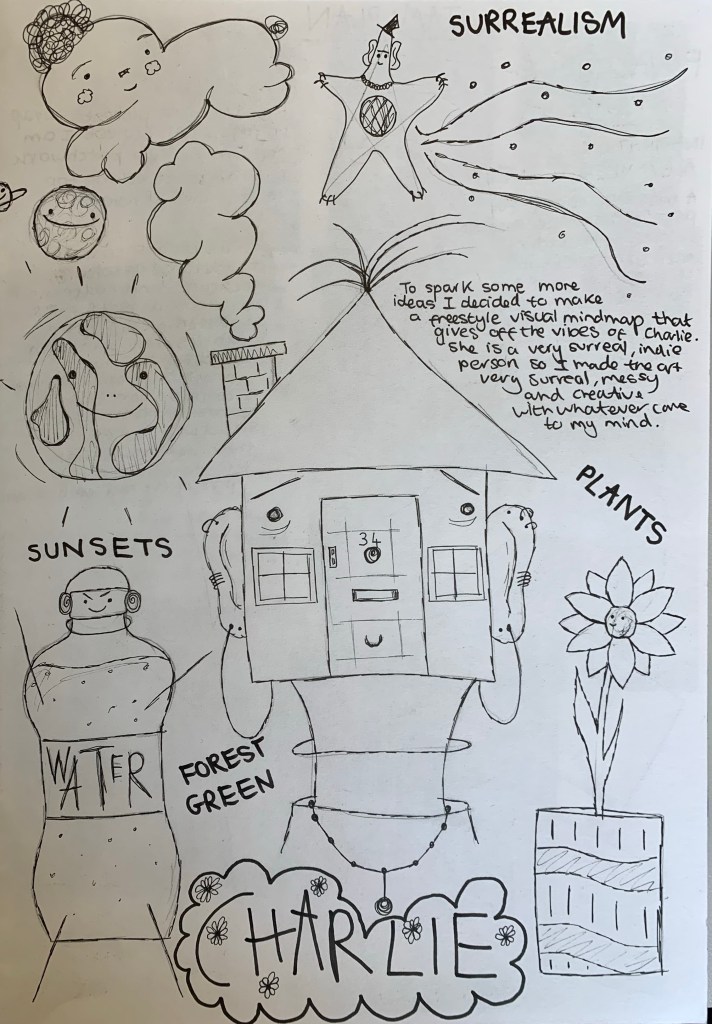 SURREALISM
To spark some more
ideas I decided to make
a freestyle visual mindmap that
gives off the vibes of Charlie.
She is a very surreal, indie
person so I made the art
very surreal, messy
and creative
with whatever came
to my mind.
PLANTS
SUNSETS
34
WATER
FOREST
GREEN
CHARLIE